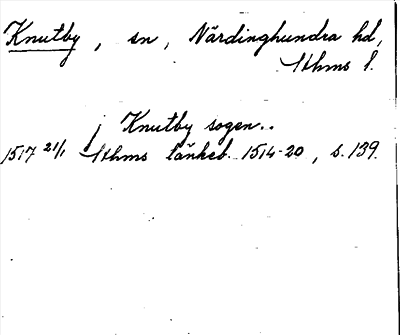 Knutby, sn, Närdinghundra hd,
Sthms l.
j Knutby sogen..
1517 21/1 Sthms tänkeb. 1514-20, s. 139.